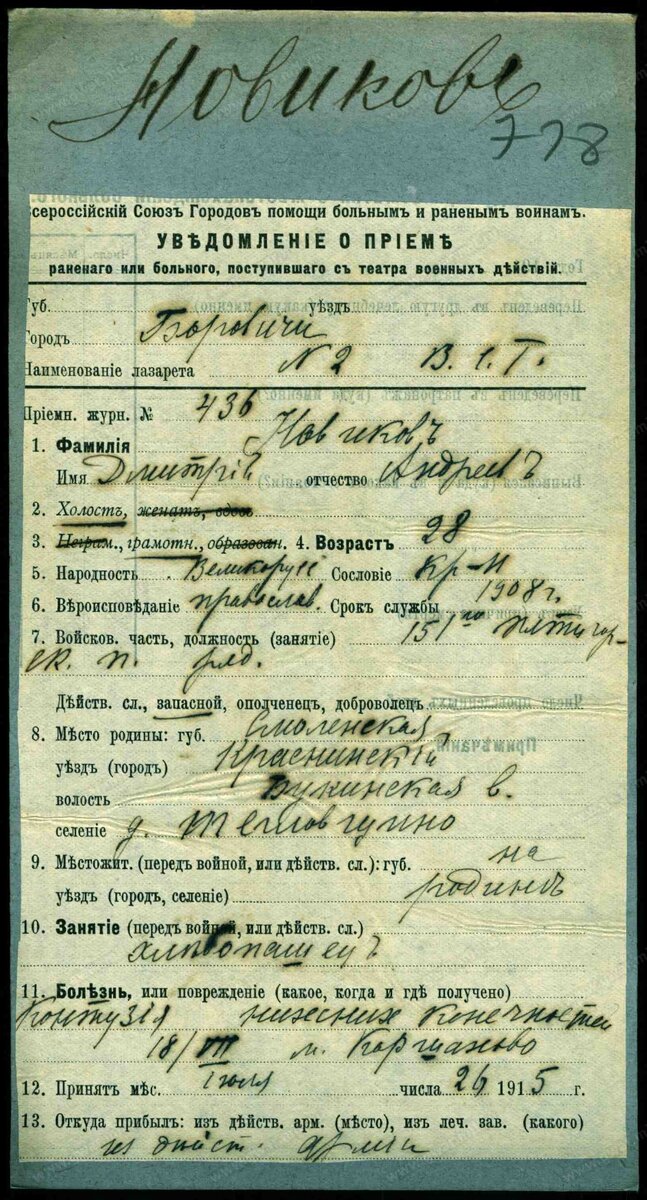 Новиковъ
778
Всероссійскій Союзъ Городовъ помощи больнымъ и раненымъ воинамъ.
УВѢДОМЛЕНІЕ О ПРІЕМѢ
раненаго или больного, поступившаго съ театра военныхъ дѣйствій.
Губ. уѣздъ
Городъ Боровичи
Наименованіе лазарета N 2 В. С. Г.
Пріемн. журн. № 436
1. Фамилія Новиковъ
Имя Дмитрій отчество Андреевъ
2. Холостъ, женатъ, вдовъ
3. Неграм., грамотн., образован. 4. Возрастъ 28
5. Народность Великорусс Сословіе Кр-н
6. Вѣроисповѣданіе православ. Срокъ службы 1908 г.
7. Войсков. часть, должность (занятіе) 151го Пятигор-
ск. п. ряд.
Дѣйств. сл., запасной, ополченец, доброволец
8. Мѣсто родины: губ. Смоленская
уѣздъ (городъ) Краснинскій
волость Букинская в.
селеніе д.
9. Мѣстожит. (передъ войной, или дѣйств. сл.): губ. на
уѣздъ (городъ, селеніе) родинѣ
10. Занятіе (передъ войной, или дѣйств. сл.)
хлѣбопашецъ
11. Болѣзнь, или поврежденіе (какое, когда и гдѣ получено)
Контузія нижсних конечностей
18/VII м.
12. Принятъ мѣс. Іюля числа 26 1915 г.
13. Откуда прибылъ: изъ дѣйств. арм. (мѣсто), изъ леч. зав. (какого)
из дѣйст. арміи